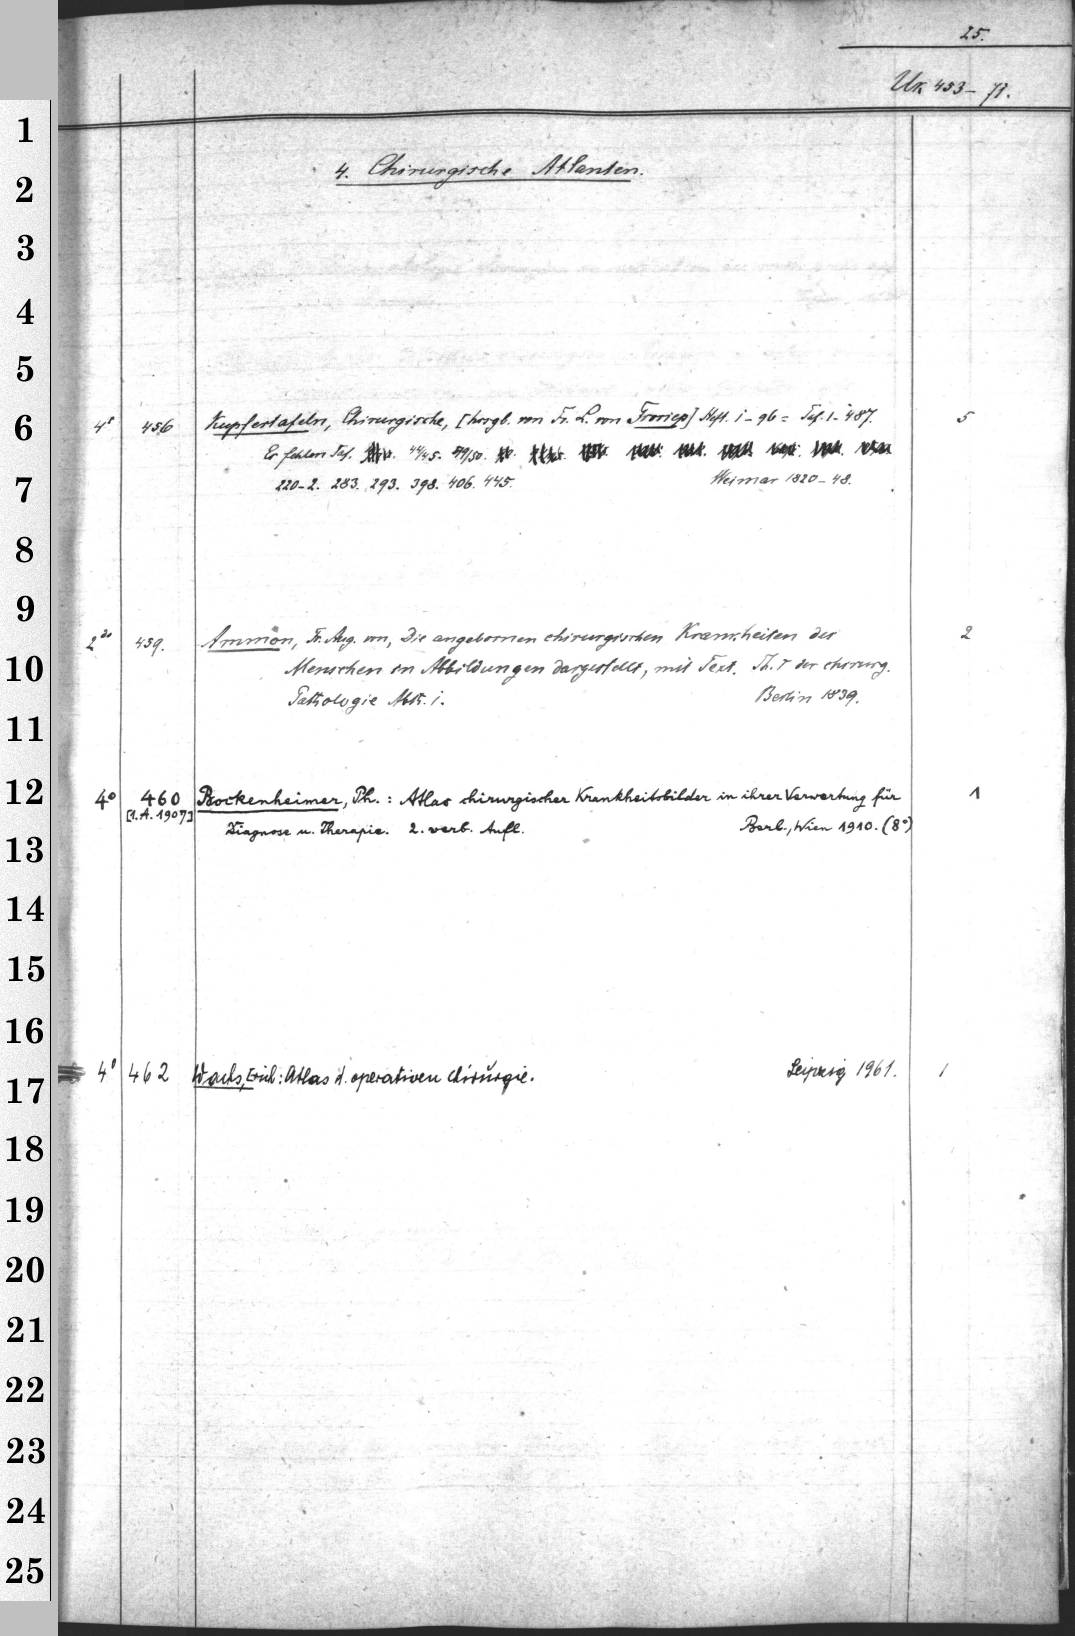 25.
Uk 453-71.
4. Chirurgische Atlanten.
4° 456 Kupfertafeln, Chirurgische, [hrsgb. von Fr. L. von Froriep] Heft. 1-96 = Taf. 1-487. 5
Es fehlen Taf. 44/45. 59/50.
220-2. 283. 293. 398. 406. 445. Weimar 1820-48.
2° 459. Ammon, Fr. Aug. von, Die angebornen chirurgischen Krankheiten des 2
Menschen in Abbildungen dargestellt, mit Text. Th. I der chirurg.
Pathologie Abth. 1. Berlin 1839.
4° 460 Bockenheimer, Ph.: Atlas chirurgischer Krankheitsbilder in ihrer Verwertung für 1
[1. A. 1907] Diagnose u. Therapie. 2. verb. Aufl. Berl., Wien 1910. (8°)
4° 462 Wachs, Erich: Atlas d. operativen Chirurgie. Leipzig 1961. 1
1
2
3
4
5
6
7
8
9
10
11
12
13
14
15
16
17
18
19
20
21
22
23
24
25